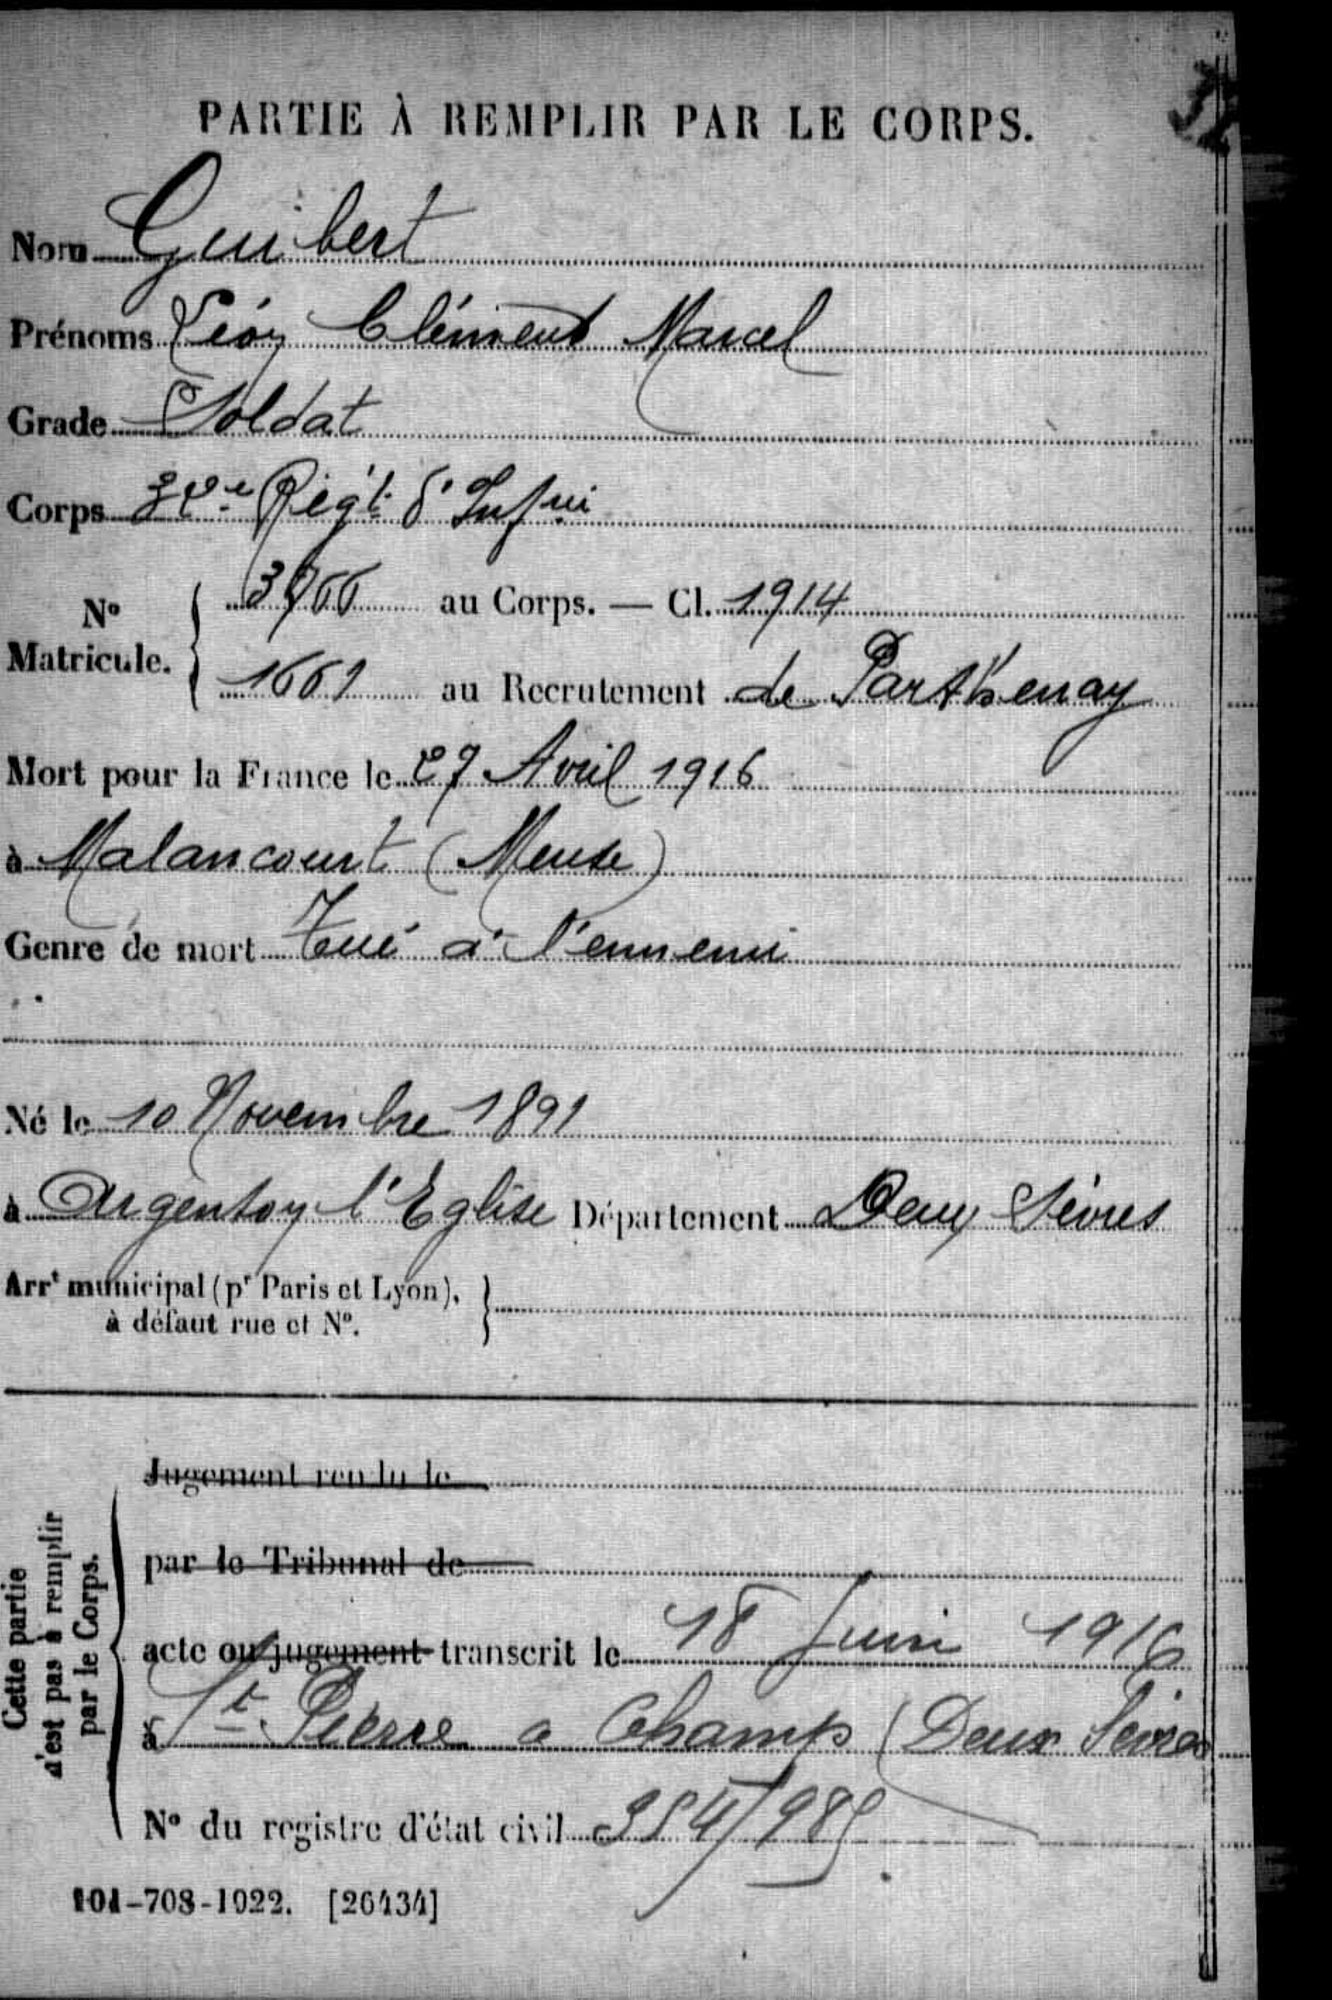 PARTIE À REMPLIR PAR LE CORPS.
Nom Guibert
Prénoms Léon Clément Marcel
Grade Soldat
Corps 32e Régt d'Infrie
No Matricule. 3966 au Corps. — Cl. 1914
1661 au Recrutement de Parthenay
Mort pour la France le 27 Avril 1916
à Malancourt (Meuse)
Genre de mort Tué à l'ennemi
Né le 10 Novembre 1891
à Argenton l'Eglise Département Deux Sèvres
Arrt municipal (pr Paris et Lyon), à défaut rue et No.
Cette partie n'est pas à remplir par le Corps.
Jugement rendu le
par le Tribunal de
acte ou jugement transcrit le 18 Juin 1916
à St Pierre a Champ (Deux Sèvres
No du registre d'état civil
101-708-1922. [26434]